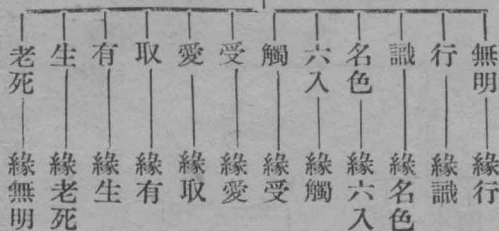 無明 緣行
行 緣識
識 緣名色
名色 緣六入
六入 緣觸
觸 緣受
受 緣愛
愛 緣取
取 緣有
有 緣生
生 緣老死
老死 緣無明